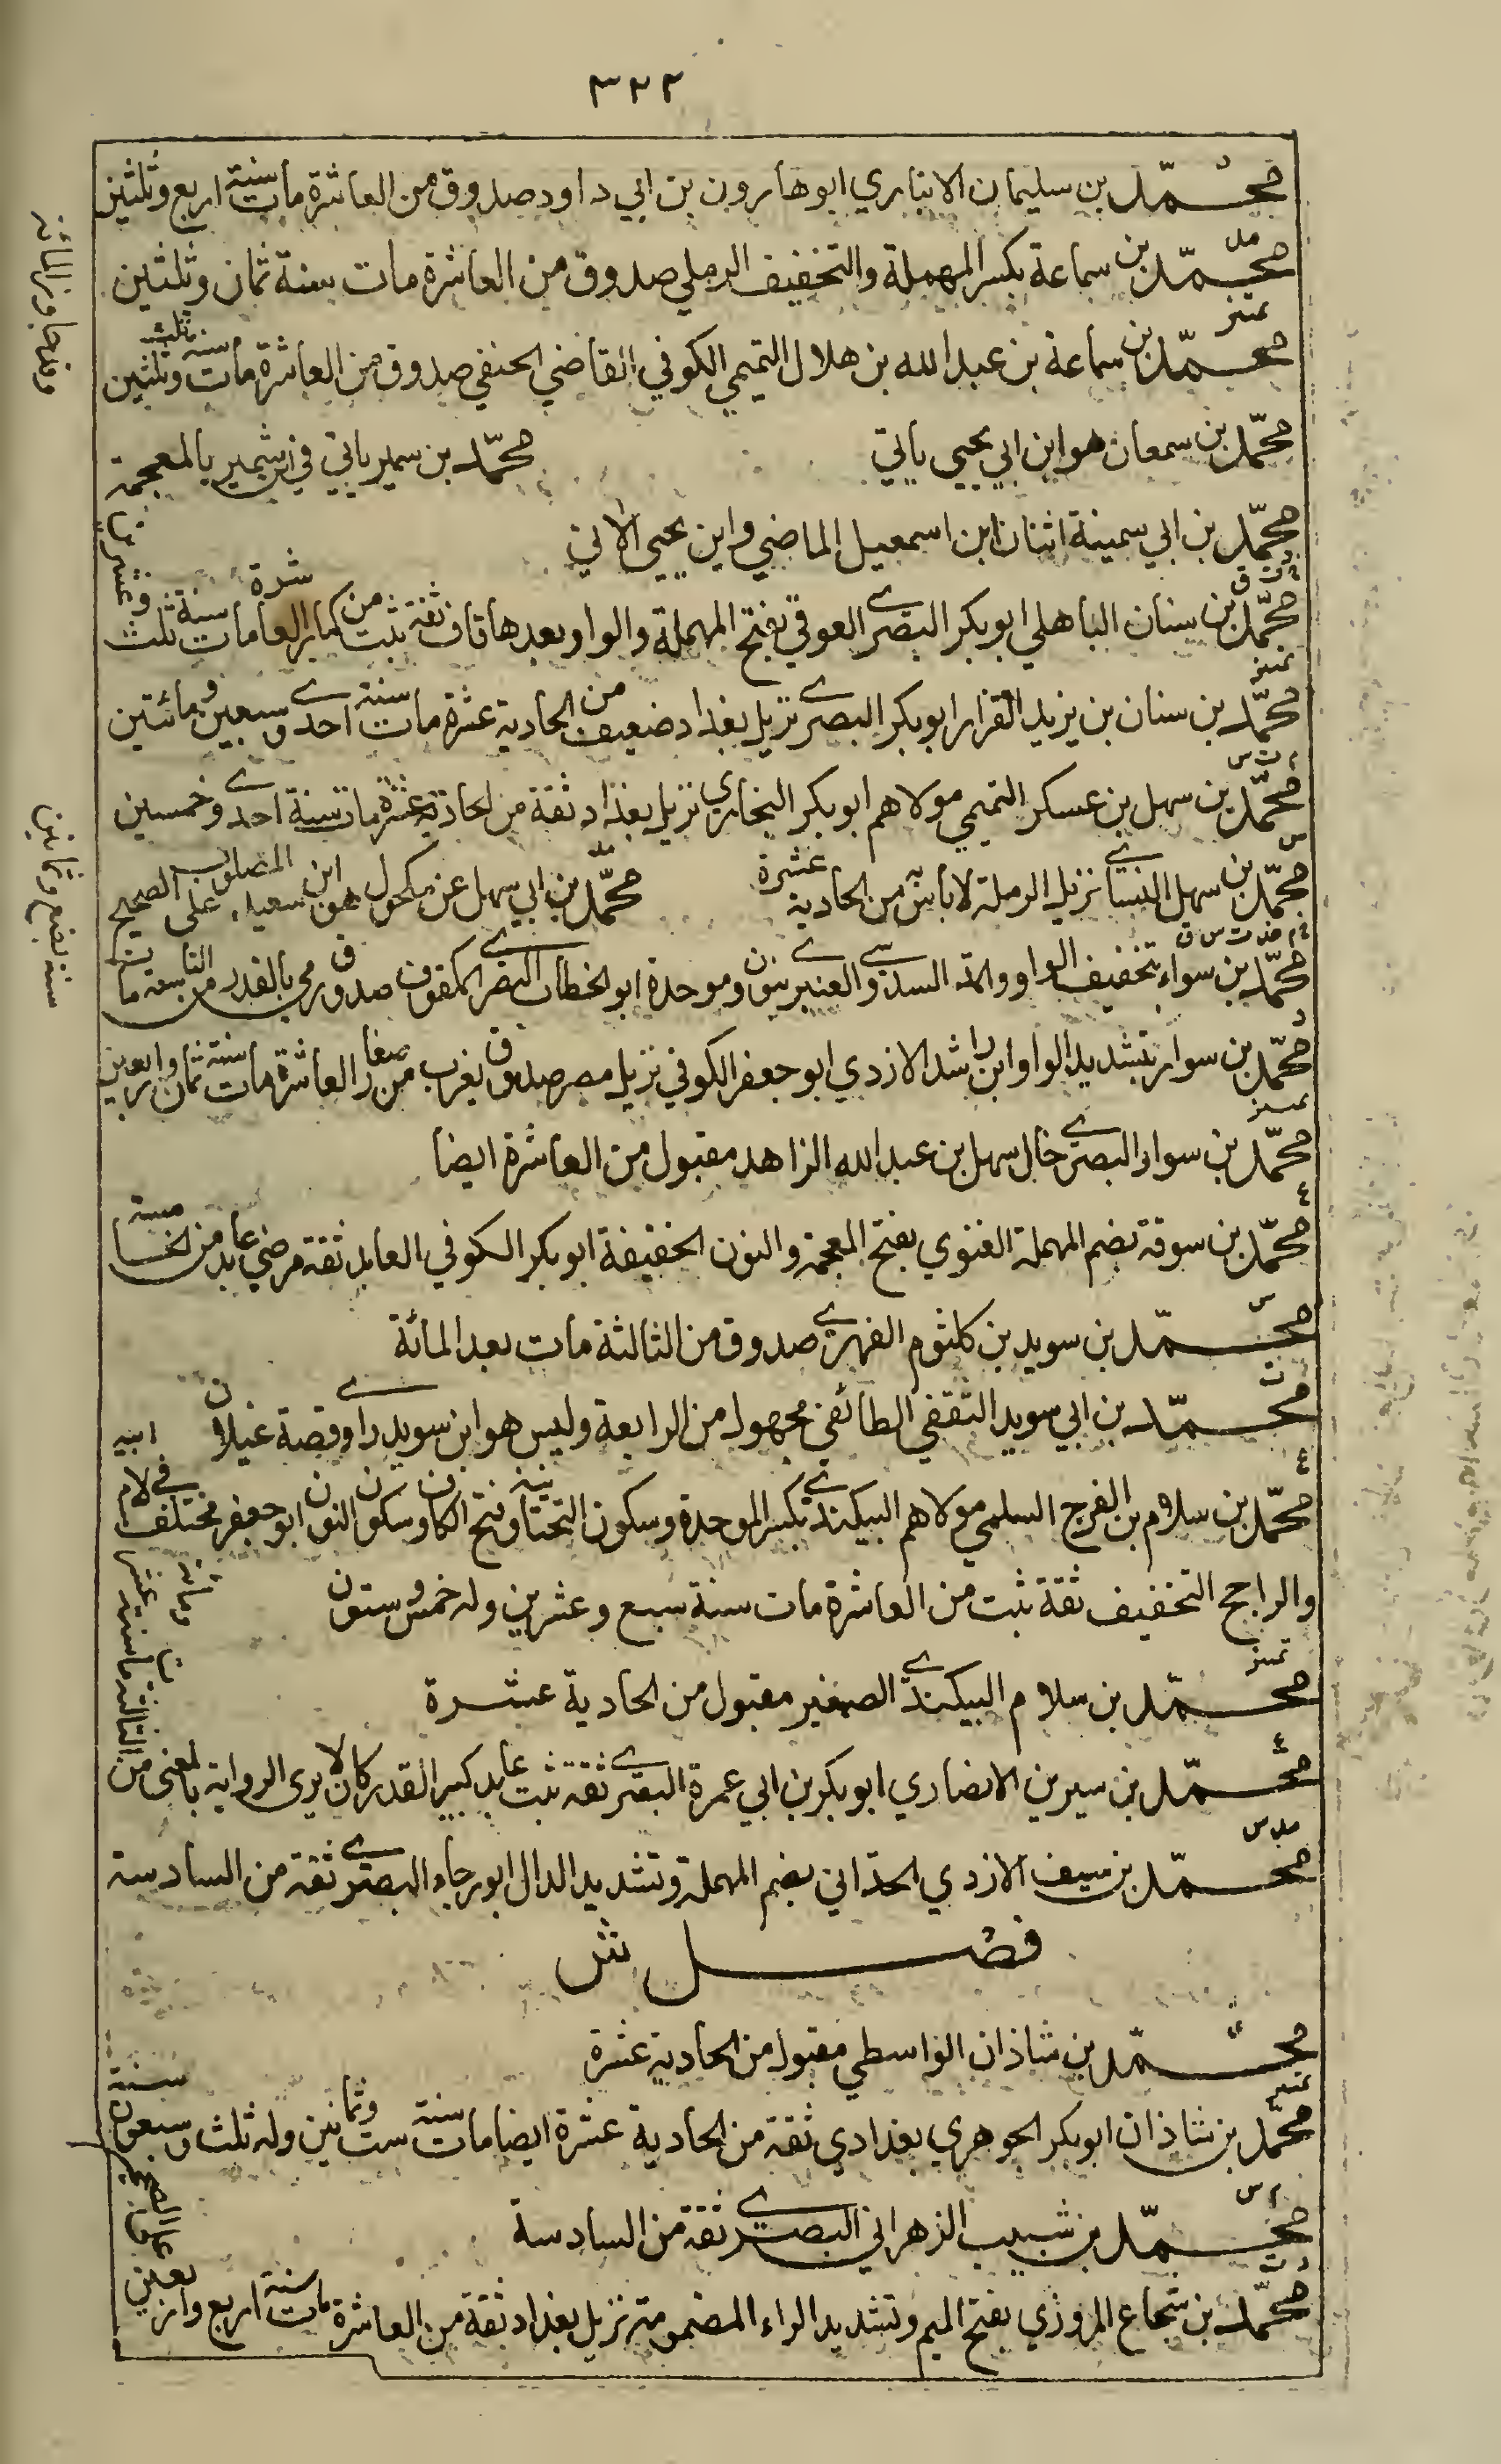 ٣٢٢
د
محمّد بن سليمان الانباري ابو هارون بن ابي داود صدوق من العاشرة مات سنة اربع وثلثين
مد
محمّد بن سماعة بكسر المهملة والتخفيف الرملي صدوق من العاشرة مات سنة ثمان وثلثين
تمييز
محمّد بن سماعة بن عبد الله بن هلال التميمي الكوفي القاضي الحنفي صدوق من العاشرة مات سنة ثلث وثلثين
وقد جاوز المائة
محمّد بن سمعان هو ابن ابي يحيى ياتي
محمّد بن سمير ياتي في ابن شمير بالمعجمة
محمّد بن ابي سمينة اثنان ابن اسمعيل الماضي وابن يحيى الاتي
خ د ت ق
محمّد بن سنان الباهلي ابو بكر البصري العوقي بفتح المهملة والواو بعدها قاف ثقة ثبت من كبار العاشرة مات سنة ثلث وعشرين
تمييز
محمّد بن سنان بن يزيد القزاز ابو بكر البصري نزيل بغداد ضعيف من الحادية عشرة مات سنة احدى وسبعين ومائتين
م ت س
محمّد بن سهل بن عسكر التميمي مولاهم ابو بكر البخاري نزيل بغداد ثقة من الحادية عشرة مات سنة احدى وخمسين
س
محمّد بن سهل النسائي نزيل الرملة لا باس به من الحادية عشرة
محمّد بن ابي سهل عن مكحول هو ابن سعيد المصلوب على الصحيح
خ م خد ت س ق
محمّد بن سواء بتخفيف الواو والمد السدوسي العنبري بنون وموحدة ابو الخطاب البصري المكفوف صدوق رمي بالقدر من التاسعة مات
سنة بضع وثمانين
د
محمّد بن سوار بتشديد الواو ابن راشد الازدي ابو جعفر الكوفي نزيل مصر صدوق يغرب من صغار العاشرة مات سنة ثمان واربعين
تمييز
محمّد بن سوار البصري خال سهل بن عبد الله الزاهد مقبول من العاشرة ايضا
ع
محمّد بن سوقة بضم المهملة الغنوي بفتح المعجمة والنون الخفيفة ابو بكر الكوفي العابد ثقة مرضي عابد من الخامسة
س
محمّد بن سويد بن كلثوم الفهري صدوق من الثالثة مات بعد المائة
ت
محمّد بن ابي سويد الثقفي الطائفي مجهول من الرابعة وليس هو ابن سويد راوي قصة غيلان
محمّد بن سلام بن الفرج السلمي مولاهم البيكندي بكسر الموحدة وسكون التحتانية وفتح الكاف وسكون النون ابو جعفر مختلف في لام ابيه
والراجح التخفيف ثقة ثبت من العاشرة مات سنة سبع وعشرين وله خمس وستون
تمييز
محمّد بن سلام البيكندي الصغير مقبول من الحادية عشرة
ع
محمّد بن سيرين الانصاري ابو بكر بن ابي عمرة البصري ثقة ثبت عابد كبير القدر كان لا يرى الرواية بالمعنى من الثالثة مات سنة عشر ومائة
مد س
محمّد بن سيف الازدي الحداني بضم المهملة وتشديد الدال ابو رجاء البصري ثقة من السادسة
فصل ش
محمّد بن شاذان الواسطي مقبول من الحادية عشرة
تمييز
محمّد بن شاذان ابو بكر الجوهري بغدادي ثقة من الحادية عشرة ايضا مات سنة ست وثمانين وله ثلث وسبعون سنة
م س
محمّد بن شبيب الزهراني البصري ثقة من السادسة
د ت
محمّد بن شجاع المروذي بفتح الميم وتشديد الراء المضمومة نزيل بغداد ثقة من العاشرة مات سنة اربع واربعين على الصحيح